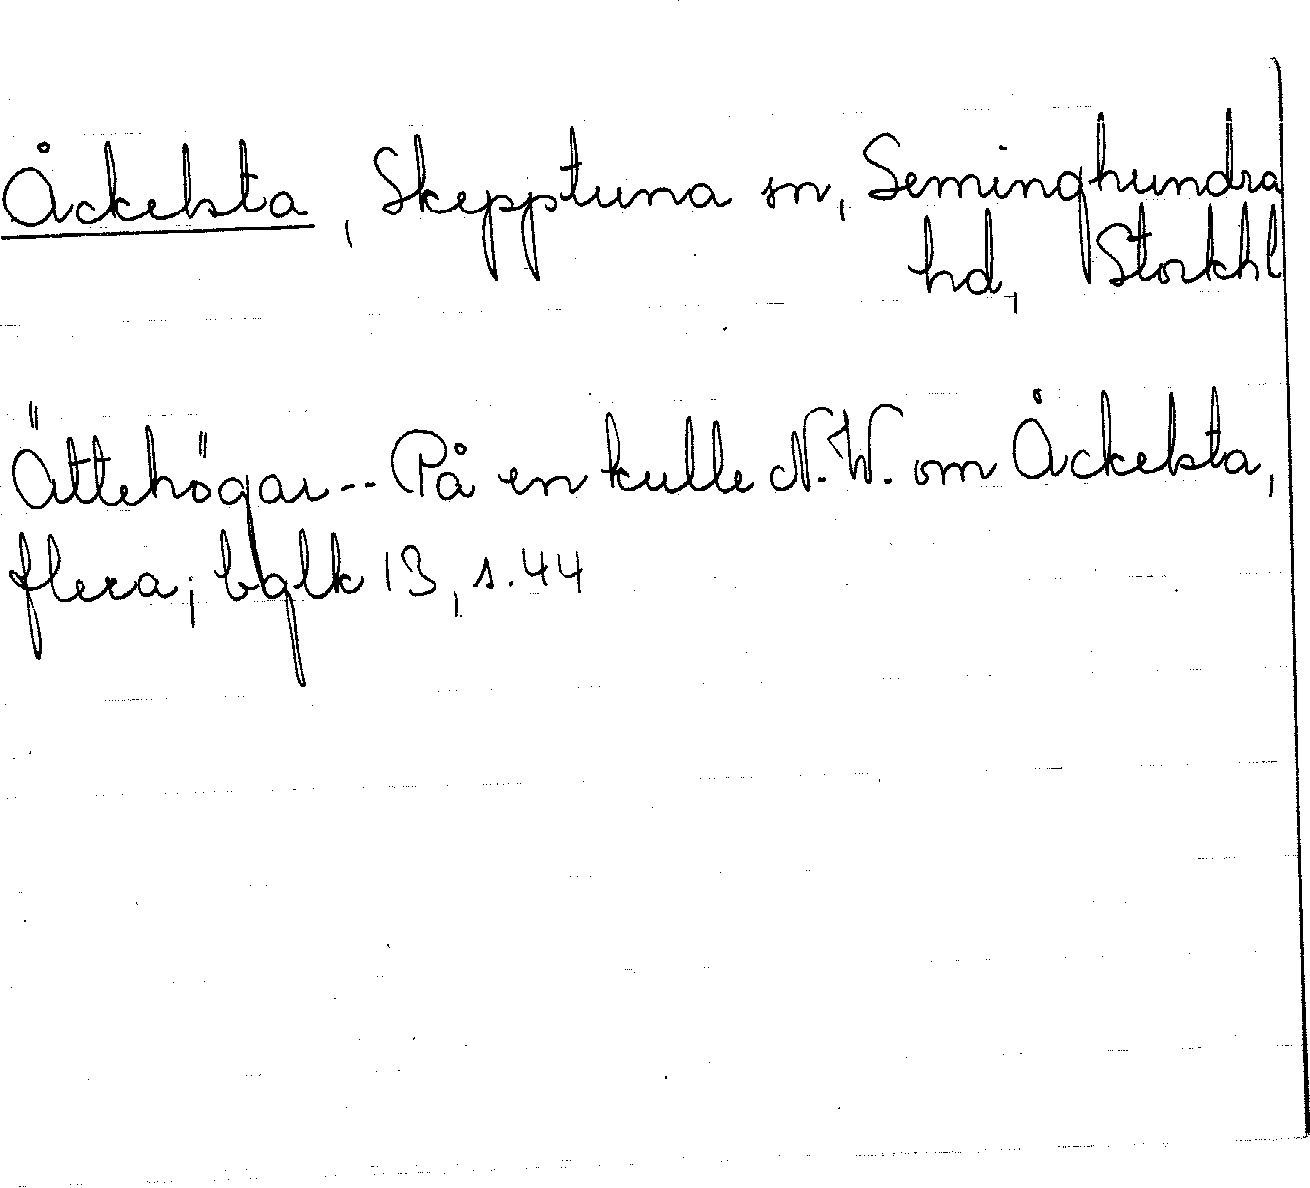 Åckelsta, Skepptuna sn, Seminghundra
hd, Stockhl
Ättehögar -- På en kulle N.W. om Åckelsta,
flera; bglk 13, s. 44